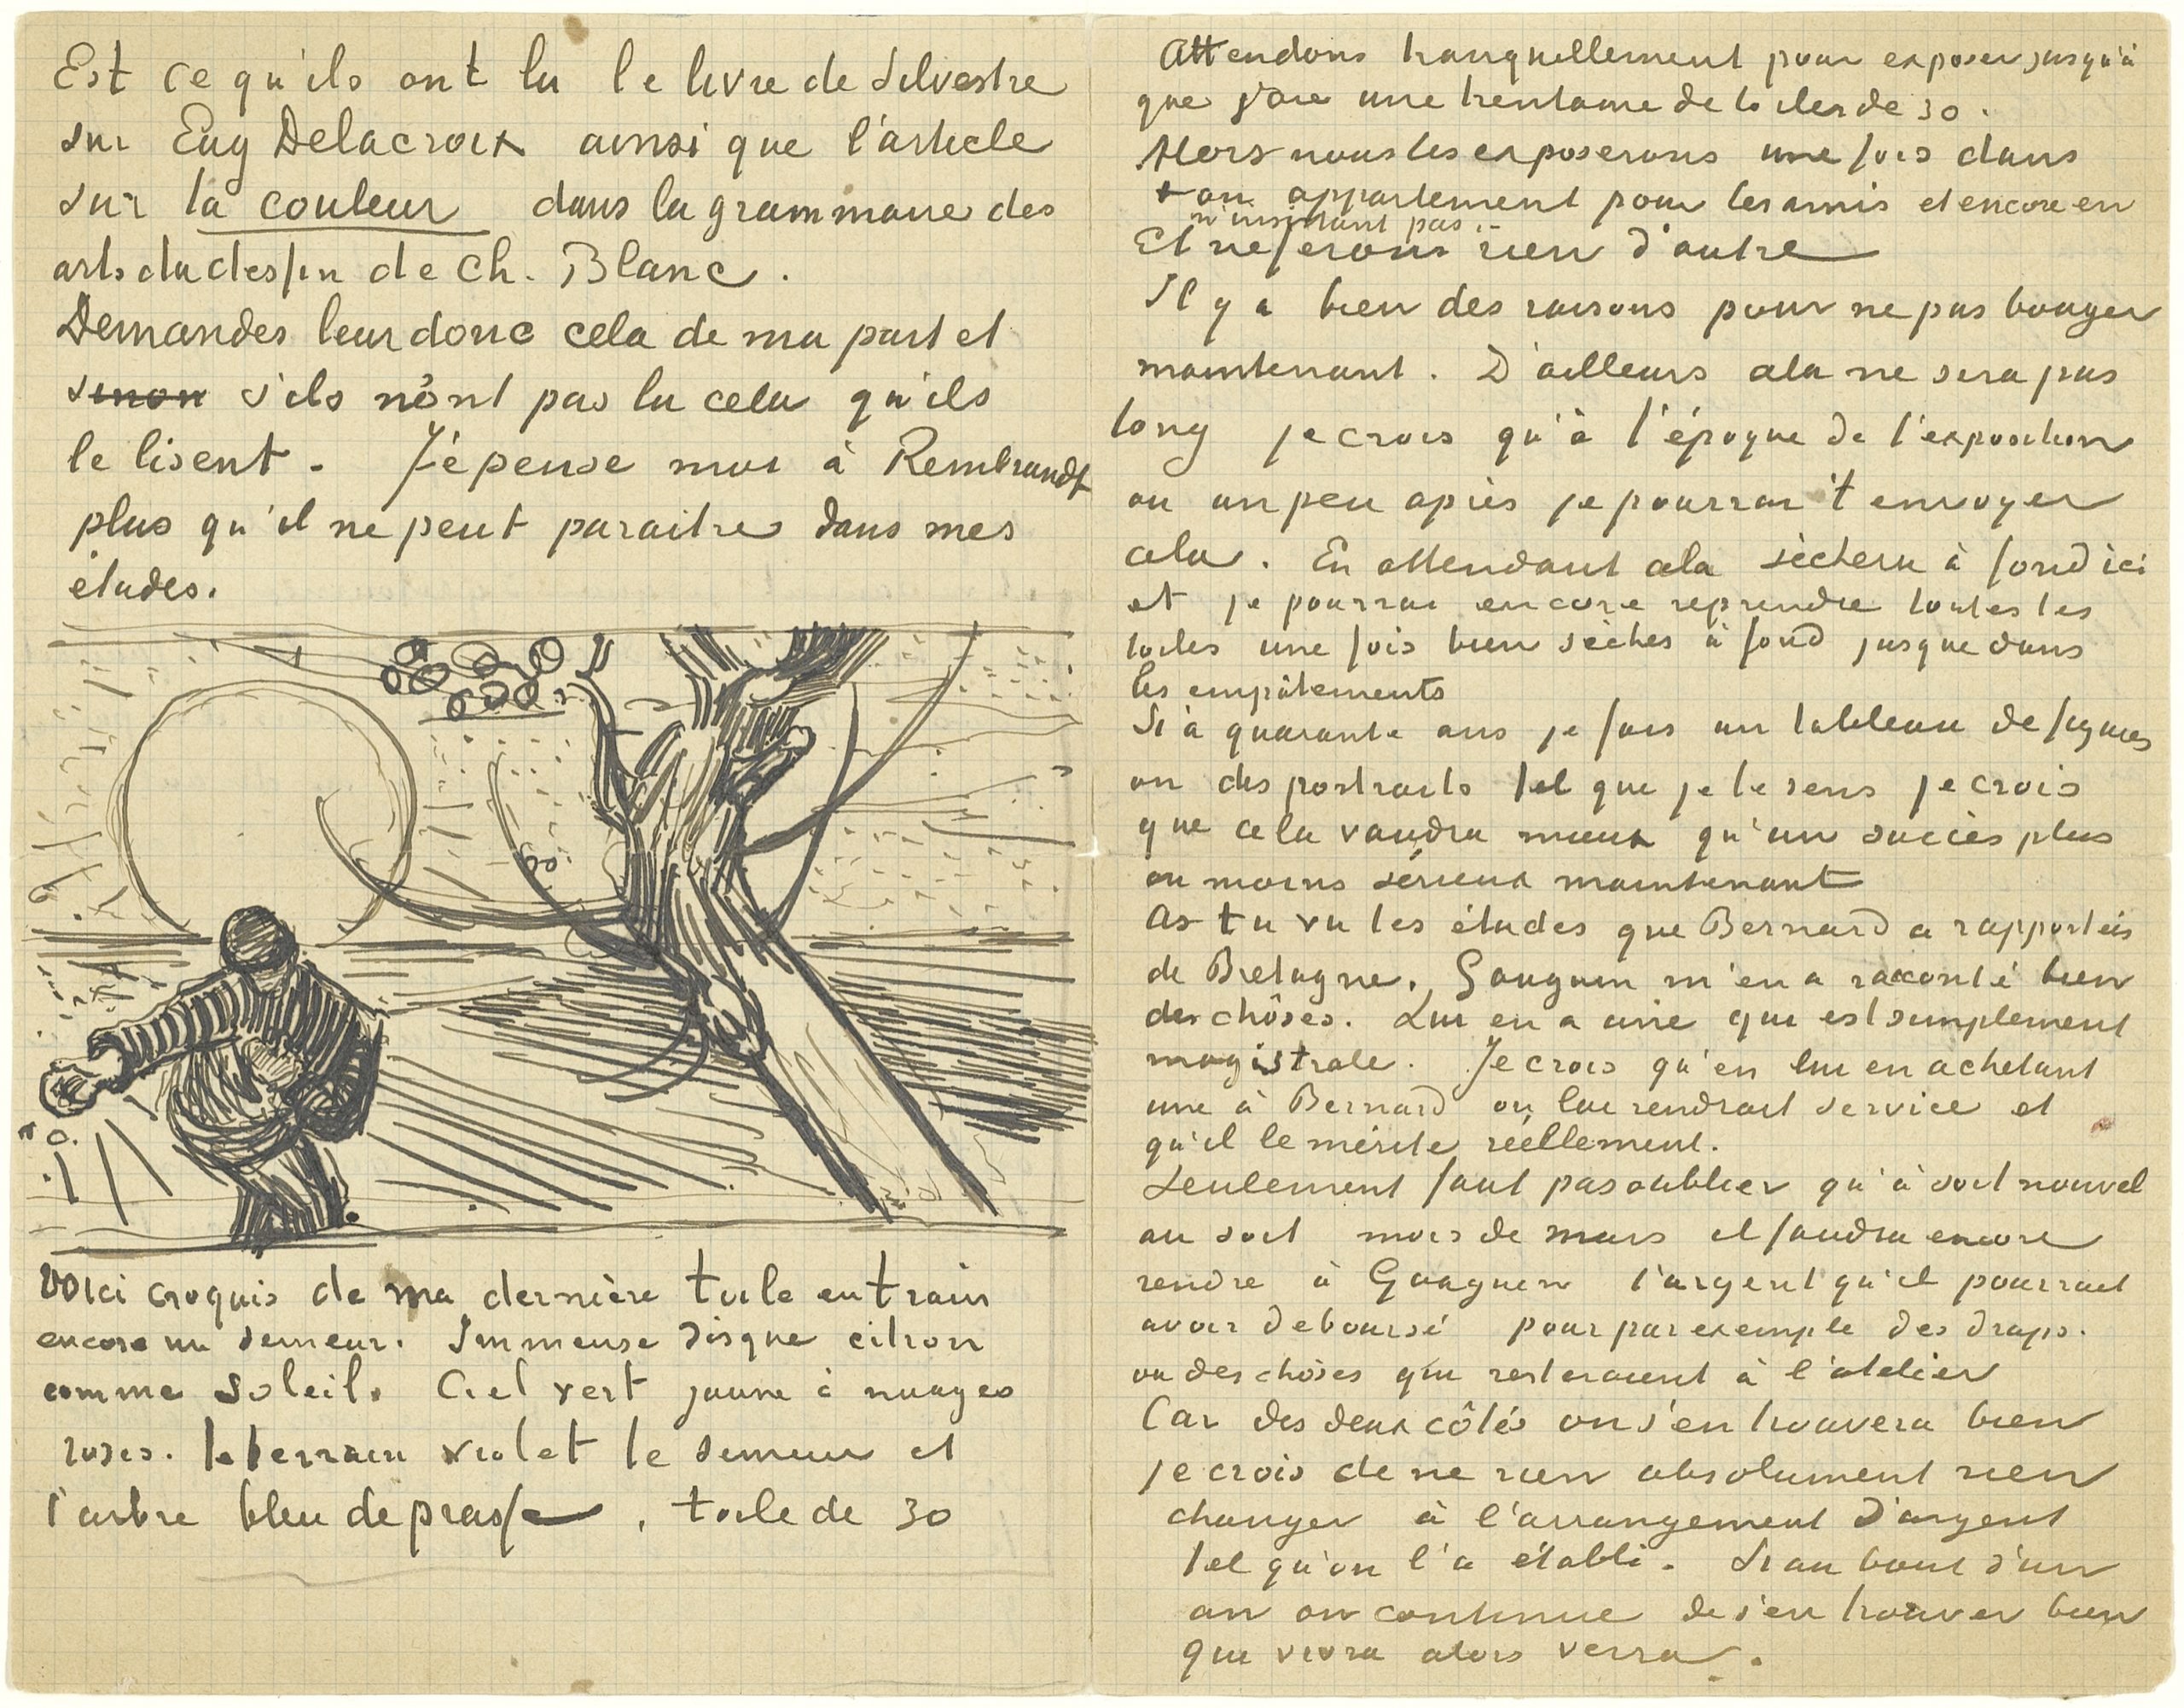 Est ce qu'ils ont lu le livre de Silvestre
sur Eug Delacroix ainsi que l'article
sur la couleur dans la grammaire des
arts du dessin de Ch. Blanc.
Demandes leur donc cela de ma part et
sinon s'ils n'ont pas lu cela qu'ils
le lisent. J'e pense moi à Rembrandt
plus qu'il ne peut paraitre dans mes
études.
Voici croquis de ma dernière toile en train
encore un semeur. Immense disque citron
comme soleil. Ciel vert jaune à nuages
roses. le terrain violet le semeur et
l'arbre bleu de prusse. toile de 30
Attendons tranquillement pour exposer jusqu'à
que j'aie une trentaine de toiles de 30.
Alors nous les exposerons une fois dans
ton appartement pour les amis et encore en
n'insistant pas.
Et ne ferons rien d'autre
Il y a bien des raisons pour ne pas bouger
maintenant. D'ailleurs cela ne sera pas
long je crois qu'à l'époque de l'exposition
ou un peu après je pourrai t'envoyer
cela. En attendant cela sèchera à fond ici
et je pourrai encore reprendre toutes les
toiles une fois bien sèches à fond jusque dans
les empâtements
Si à quarante ans je fais un tableau de figures
ou des portraits tel que je le sens je crois
que cela vaudra mieux qu'un succès plus
ou moins sérieux maintenant
As tu vu les études que Bernard a rapportées
de Bretagne. Gauguin m'en a raconté bien
des chôses. Lui en a une qui est simplement
magistrale. Je crois qu'en lui en achetant
une à Bernard on lui rendrait service et
qu'il le mérite réellement.
Seulement faut pas oublier qu'à soit nouvel
an soit mois de mars il faudra encore
rendre à Gauguin l'argent qu'il pourrait
avoir deboursé pour par exemple des draps.
ou des chôses qui resteraient à l'atelier
Car des deux côtés on s'en trouvera bien
je crois de ne rien absolument rien
changer à l'arrangement d'argent
tel qu'on l'a établi. Si au bout d'un
an on continue de s'en trouver bien
qui vivra alors verra.